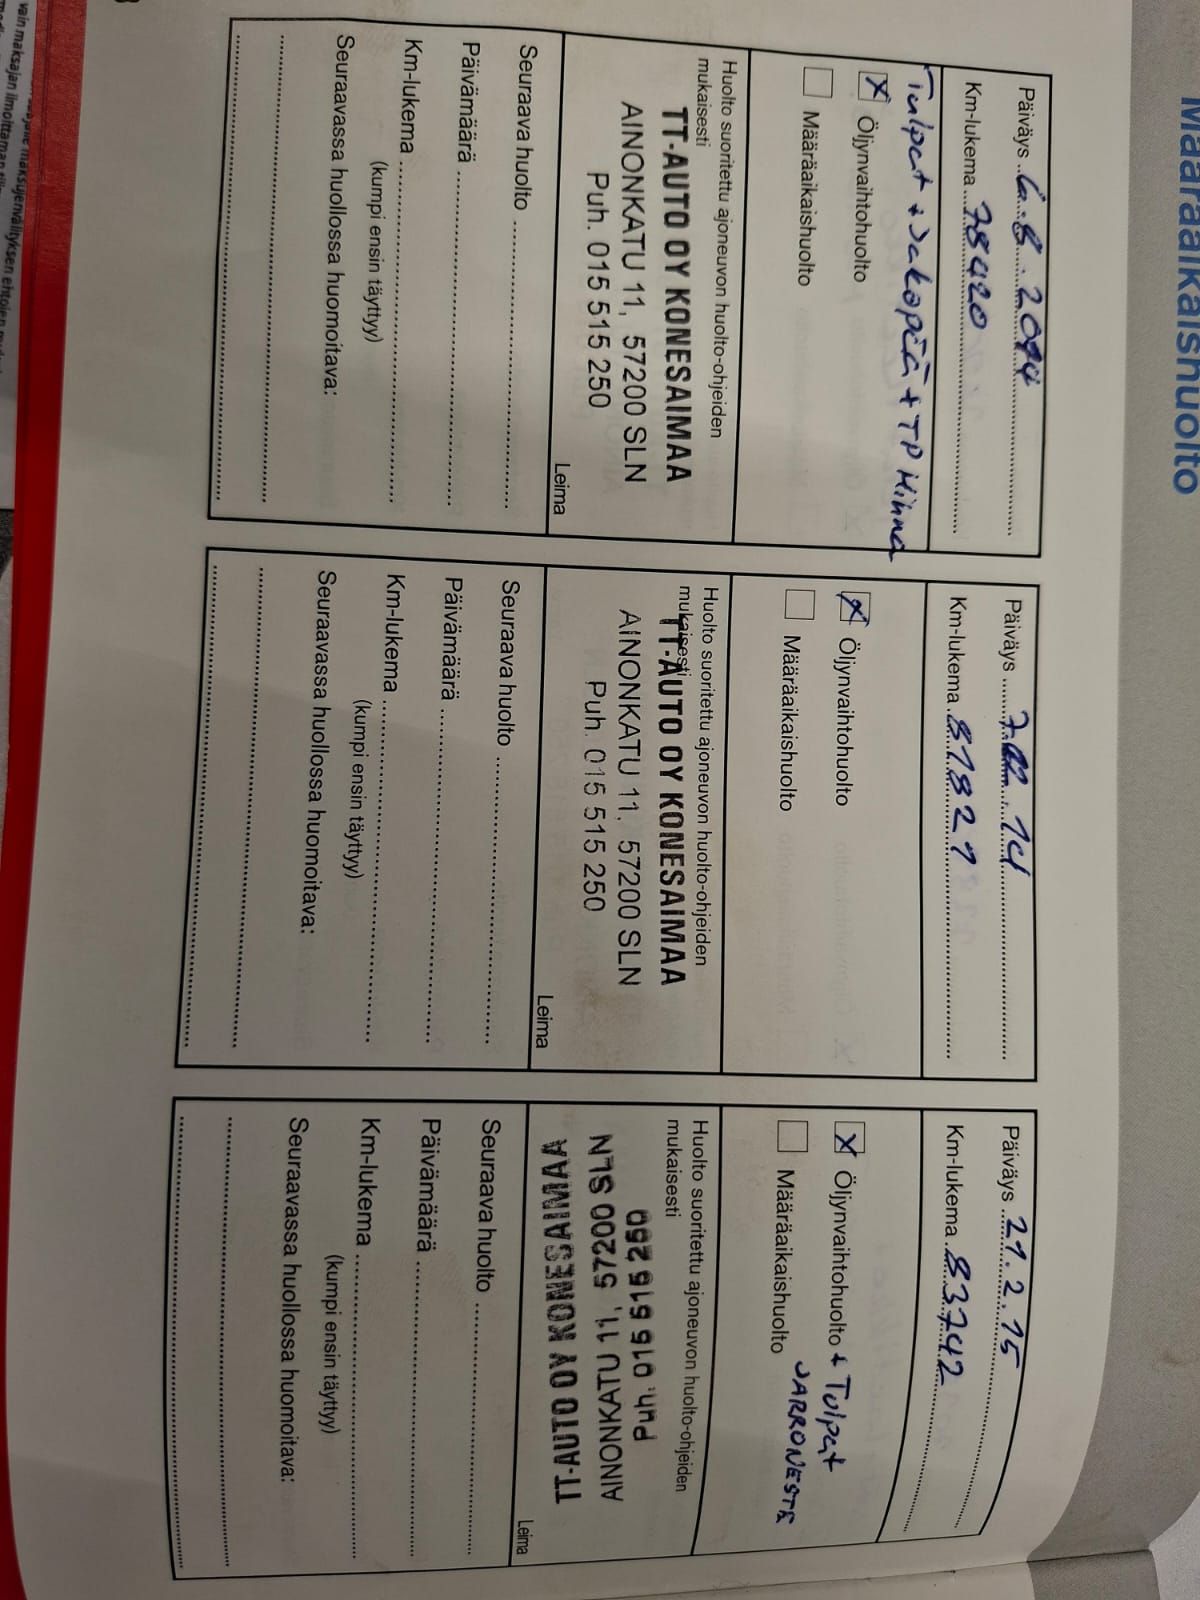 Määräaikaishuolto
Päiväys 6.8.2014
Km-lukema 78420
Tulpat + Jakopää + TP Hihna
X Öljynvaihtohuolto
Määräaikaishuolto
Huolto suoritettu ajoneuvon huolto-ohjeiden
mukaisesti
TT-AUTO OY KONESAIMAA
AINONKATU 11, 57200 SLN
Puh. 015 515 250
Leima
Seuraava huolto
Päivämäärä
Km-lukema
(kumpi ensin täyttyy)
Seuraavassa huollossa huomoitava:
Päiväys 14
Km-lukema 81821
X Öljynvaihtohuolto
Määräaikaishuolto
Huolto suoritettu ajoneuvon huolto-ohjeiden
mukaisesti
TT-AUTO OY KONESAIMAA
AINONKATU 11, 57200 SLN
Puh. 015 515 250
Leima
Seuraava huolto
Päivämäärä
Km-lukema
(kumpi ensin täyttyy)
Seuraavassa huollossa huomoitava:
Päiväys 21.2.15
Km-lukema 83742
X Öljynvaihtohuolto + Tulpat
JARRONESTE
Määräaikaishuolto
Huolto suoritettu ajoneuvon huolto-ohjeiden
mukaisesti
TT-AUTO OY KONESAIMAA
AINONKATU 11, 57200 SLN
Puh. 015 515 250
Leima
Seuraava huolto
Päivämäärä
Km-lukema
(kumpi ensin täyttyy)
Seuraavassa huollossa huomoitava:
vain maksajan ilmoittaman